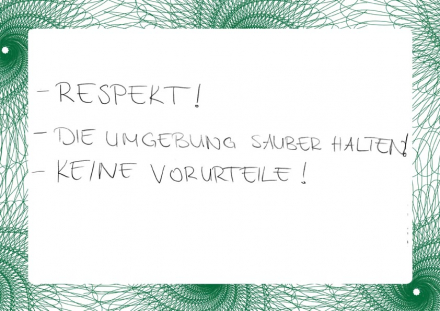 - RESPEKT!
- DIE UMGEBUNG SAUBER HALTEN!
- KEINE VORURTEILE!